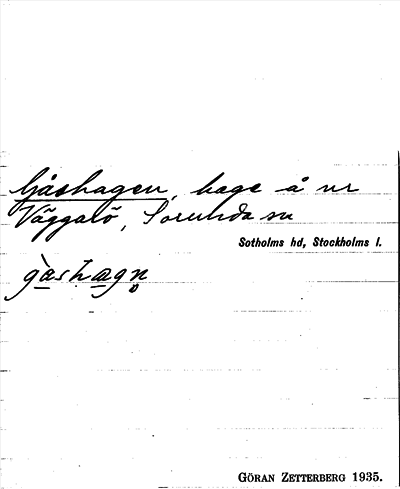 Gåshagen, hage å nr
Väggalö, Sorunda sn
Sotholms hd, Stockholms l.
gàshagn̥
GÖRAN ZETTERBERG 1935.